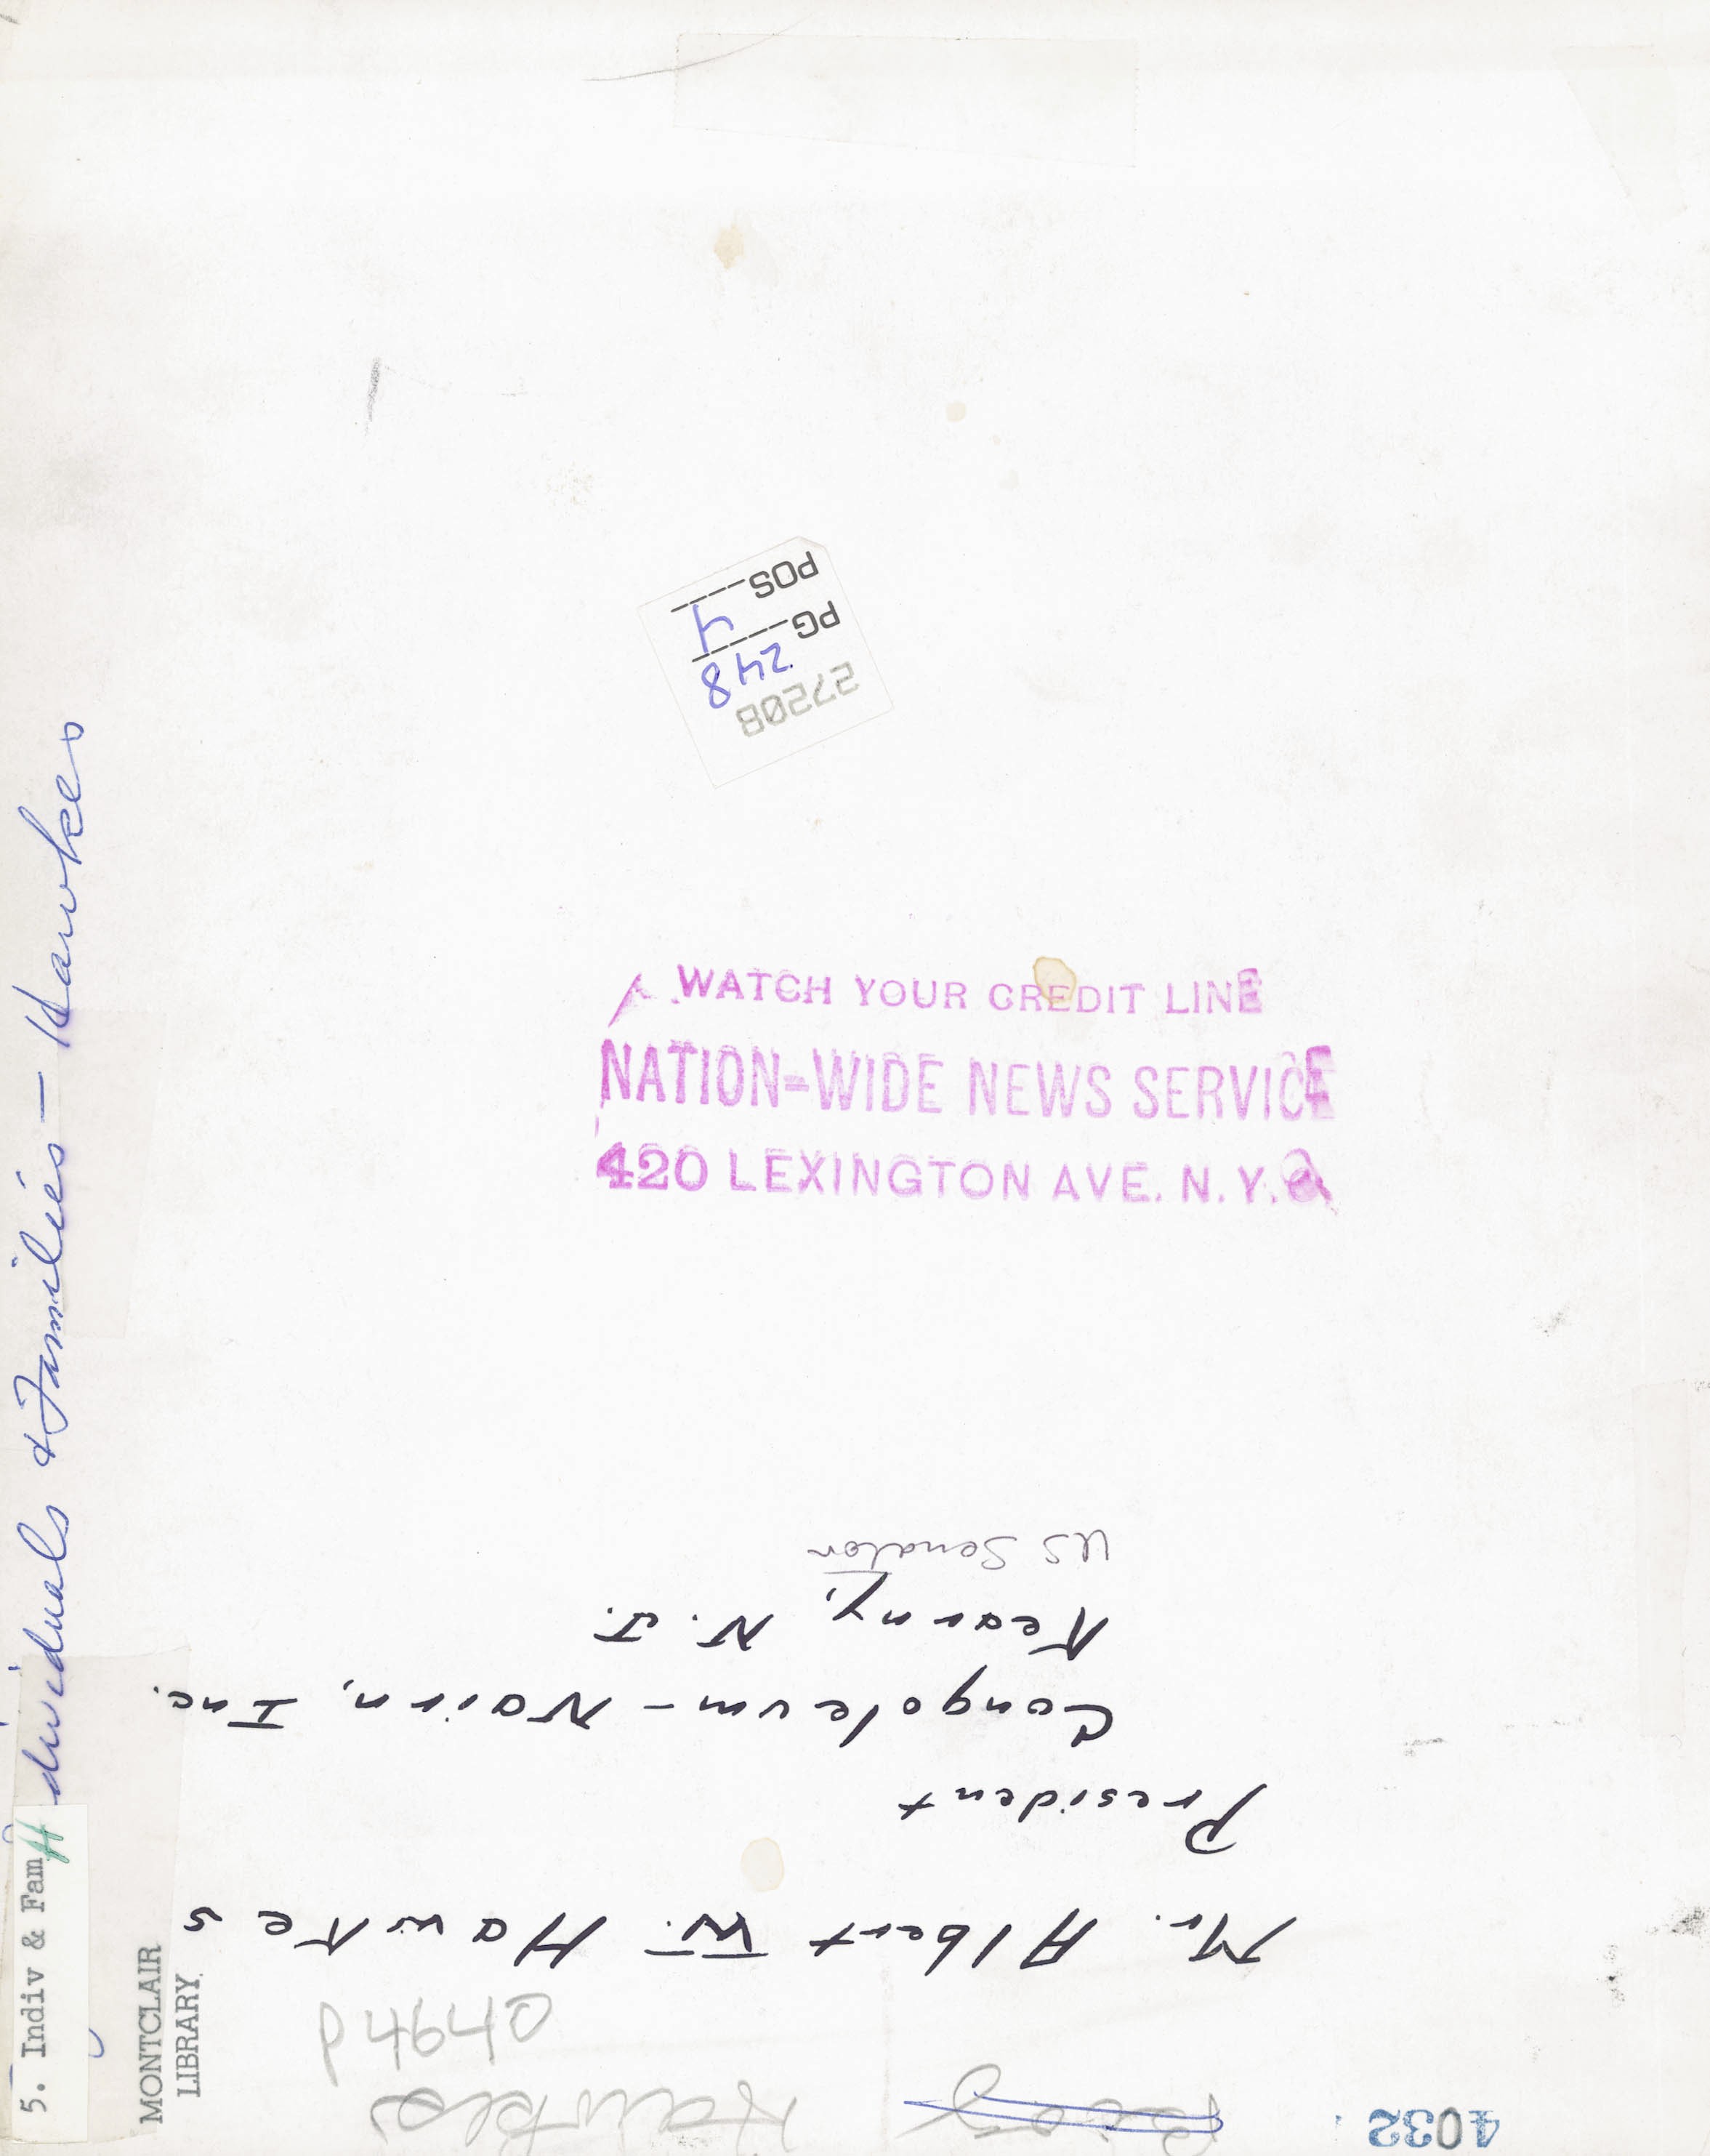 4032
Biog
Hawkes
p4640
Mr. Albert W. Hawkes
President
Congoleum-Nairn, Inc.
Kearny, N. J.
US Senator
WATCH YOUR CREDIT LINE
NATION-WIDE NEWS SERVICE
420 LEXINGTON AVE. N.Y.C
27208
248
PG 4
POS
5. Indiv & Fam H
dividuals & Families - Hawkes
MONTCLAIR
LIBRARY.